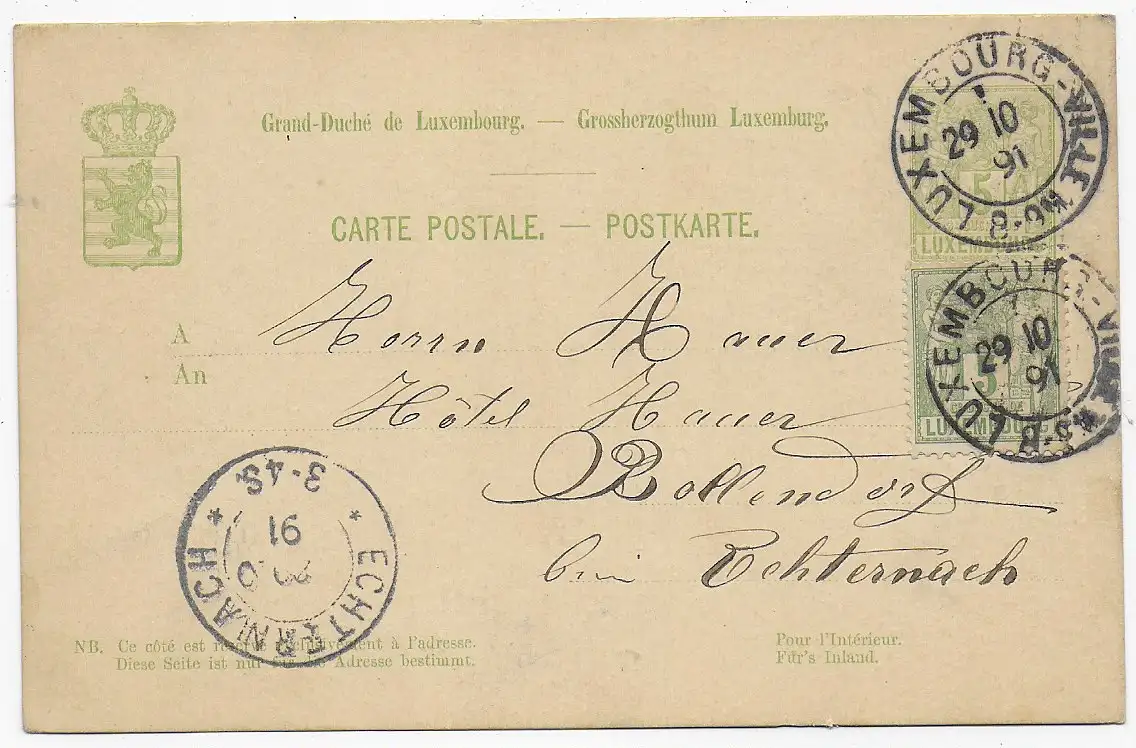 Grand-Duché de Luxembourg. — Grossherzogthum Luxemburg.
CARTE POSTALE. — POSTKARTE.
LUXEMBOURG-VILLE
29 10
91
8-9M
5
LUXEMBOURG
LUXEMBOURG-VILLE
29 10
91
8-9M
5
LUXEMBOURG
A
An
Herrn Hauer
Hôtel Hauer
Bollendorf
bei Echternach
ECHTERNACH
91
3-4S
NB. Ce côté est réservé exclusivement à l'adresse.
Diese Seite ist nur für die Adresse bestimmt.
Pour l'Intérieur.
Für's Inland.